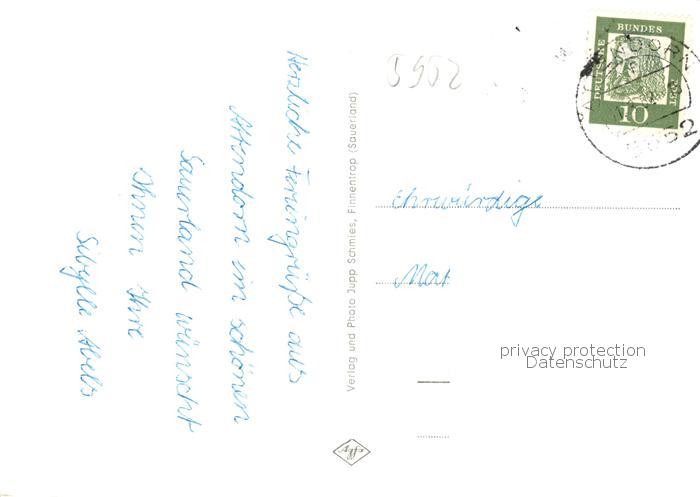 Herzliche Feriengrüße aus
Attendorn im schönen
Sauerland wünscht
Ihnen Ihre
Sibylle Abels
Verlag und Photo Jupp Schmies, Finnentrop (Sauerland)
Agfa
5952
DEUTSCHE BUNDESPOST
10
Ehrwürdige
privacy protection
Datenschutz